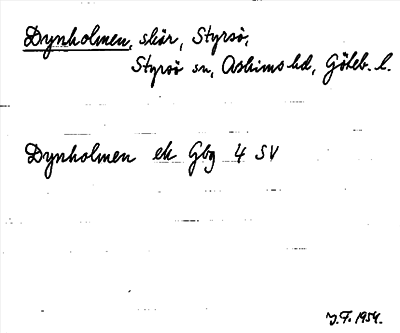 Dynholmen, skär, Styrsö,
Styrsö sn, Askims hd, Göteb. l.
Dynholmen ek Gbg 4 SV
J.F. 1954.